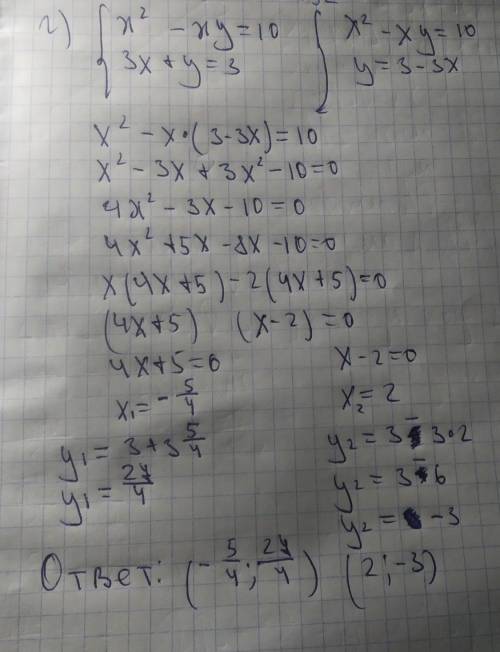 г) { x² - xy = 10 { x² - xy = 10
3x + y = 3 y = 3 - 3x
x² - x·(3-3x) = 10
x² - 3x + 3x² - 10 = 0
4x² - 3x - 10 = 0
4x² + 5x - 8x - 10 = 0
x(4x+5) - 2(4x+5) = 0
(4x+5) (x-2) = 0
4x+5=0 x-2=0
x₁ = - 5/4 x₂ = 2
y₁ = 3+3 5/4 y₂ = 3 - 3·2
y₁ = 27/4 y₂ = 3 - 6
y₂ = -3
Ответ: (- 5/4; 27/4) (2;-3)